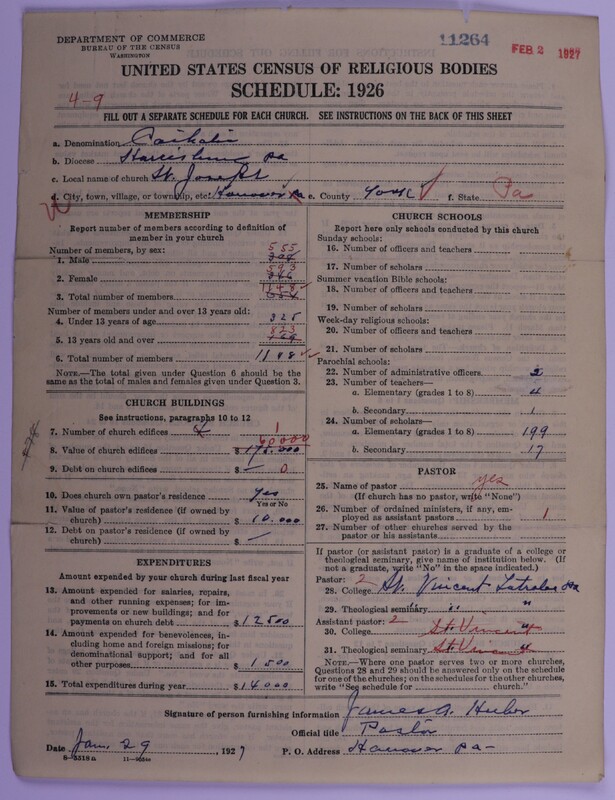 DEPARTMENT OF COMMERCE
BUREAU OF THE CENSUS
WASHINGTON
11264
FEB 2 1927
UNITED STATES CENSUS OF RELIGIOUS BODIES
SCHEDULE: 1926
4-9
FILL OUT A SEPARATE SCHEDULE FOR EACH CHURCH. SEE INSTRUCTIONS ON THE BACK OF THIS SHEET
a. Denomination Catholic
b. Diocese Harrisburg Pa
c. Local name of church St. Joseph
d. City, town, village, or township, etc. Hanover Pa e. County York f. State Pa
MEMBERSHIP
Report number of members according to definition of member in your church
Number of members, by sex:
1. Male 555
2. Female 593
3. Total number of members 1148
Number of members under and over 13 years old:
4. Under 13 years of age 325
5. 13 years old and over 823
6. Total number of members 1148
NOTE.—The total given under Question 6 should be the same as the total of males and females given under Question 3.
CHURCH BUILDINGS
See instructions, paragraphs 10 to 12
7. Number of church edifices 1
8. Value of church edifices $ 175.000
9. Debt on church edifices $ — 0
10. Does church own pastor's residence yes
Yes or No
11. Value of pastor's residence (if owned by church) $ 10.000
12. Debt on pastor's residence (if owned by church) $ —
EXPENDITURES
Amount expended by your church during last fiscal year
13. Amount expended for salaries, repairs, and other running expenses; for improvements or new buildings; and for payments on church debt $ 12500
14. Amount expended for benevolences, including home and foreign missions; for denominational support; and for all other purposes $ 1500
15. Total expenditures during year $ 14000
CHURCH SCHOOLS
Report here only schools conducted by this church
Sunday schools:
16. Number of officers and teachers
17. Number of scholars
Summer vacation Bible schools:
18. Number of officers and teachers
19. Number of scholars
Week-day religious schools:
20. Number of officers and teachers
21. Number of scholars
Parochial schools:
22. Number of administrative officers 2
23. Number of teachers—
a. Elementary (grades 1 to 8) 4
b. Secondary 1
24. Number of scholars—
a. Elementary (grades 1 to 8) 199
b. Secondary 17
PASTOR
25. Name of pastor yes
(If church has no pastor, write "None")
26. Number of ordained ministers, if any, employed as assistant pastors 1
27. Number of other churches served by the pastor or his assistants
If pastor (or assistant pastor) is a graduate of a college or theological seminary, give name of institution below. (If not a graduate, write "No" in the space indicated.)
Pastor: 2
28. College St. Vincent Latrobe Pa
29. Theological seminary " "
Assistant pastor: 2
30. College St. Vincent "
31. Theological seminary St. Vincent "
NOTE.—Where one pastor serves two or more churches, Questions 28 and 29 should be answered only on the schedule for one of the churches; on the schedules for the other churches, write "See schedule for ........ church."
Signature of person furnishing information James A. Huber
Official title Pastor
Date Jan. 29, 1927 P. O. Address Hanover Pa-